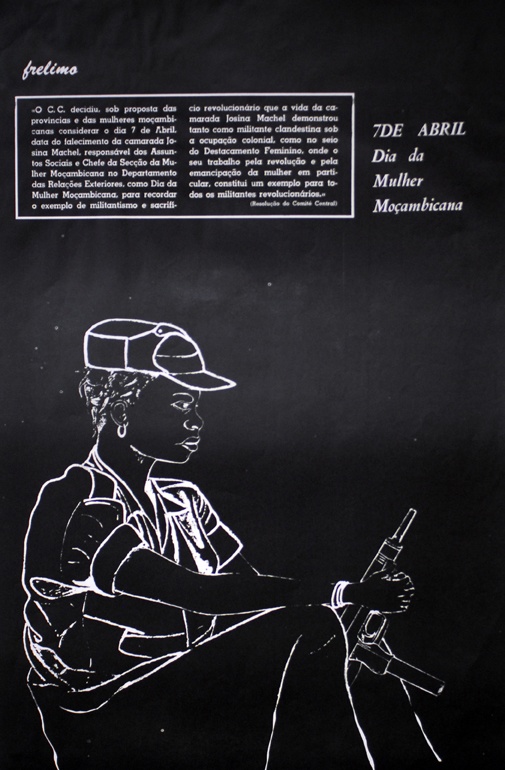 frelimo
«O C.C. decidiu, sob proposta das
provincias e das mulheres moçambi-
canas considerar o dia 7 de Abril,
data do falecimento da camarada Jo-
sina Machel, responsável dos Assun-
tos Sociais e Chefe da Secção da Mu-
lher Moçambicana no Departamento
das Relações Exteriores, como Dia da
Mulher Moçambicana, para recordar
o exemplo de militantismo e sacrifí-
cio revolucionário que a vida da ca-
marada Josina Machel demonstrou
tanto como militante clandestina sob
a ocupação colonial, como no seio
do Destacamento Feminino, onde o
seu trabalho pela revolução e pela
emancipação da mulher em parti-
cular, constitui um exemplo para to-
dos os militantes revolucionários.»
(Resolução do Comité Central)
7DE ABRIL
Dia da
Mulher
Moçambicana